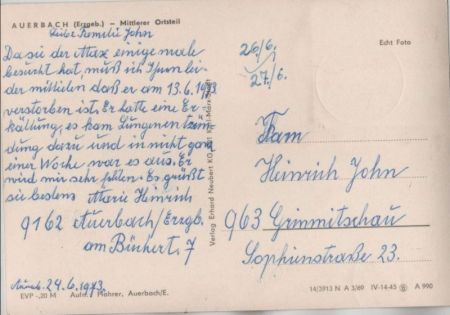 AUERBACH (Erzgeb.) – Mittlerer Ortsteil
Liebe Familie John
Da sie der Max einige male
besucht hat, muß ich Ihnen lei-
der mitteilen daß er am 13.6.1973
verstorben ist. Er hatte eine Er-
kältung, es kam Lungenentzün-
dung dazu und in nicht ganz
einer Woche war es aus. Er
wird mir sehr fehlen. Es grüßt
sie bestens Marie Heinrich
9162 Auerbach/Erzgb.
am Bückert. 7
Auerb. 24.6.1973.
EVP -,20 M Aufn.: Mohrer, Auerbach/E.
Verlag Erhard Neubert KG
26/6.
27/6.
Echt Foto
Fam
Heinrich John
963 Crimmitschau
Sophienstraße 23.
14/5913 N A 3/69 IV-14-45 A 990